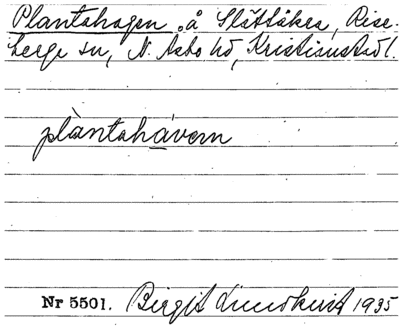 Plantahagen å Slättåkra, Rise-
berga sn, N. Åsbo hd, Kristianstad l.
plàntahávem
Nr 5501. Birgit Lindkvist 1935